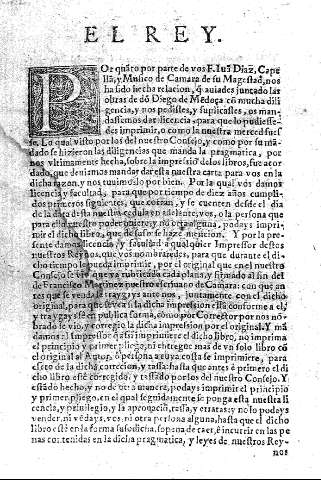 EL REY.
POr quãto por parte de vos F. Iuã Diaz, Cape
llã, y Musico de Camara de su Magestad, nos
ha sido hecha relacion, q̃ auiades juntado las
obras de dõ Diego de Mẽdoça cõ mucha dili
gencia, y nos pedistes, y suplicastes, os man
dassemos dar licencia para que lo pudiesse
des imprimir, o como la nuestra merced fues
se. Lo qual visto por los del nuestro Consejo, y como por su mã
dado se hizieron las diligencias que manda la pragmatica, por
nos vltimamente hecha, sobre la impresiõ delos libros, fue acor
dado, que deuiamos mandar dar esta nuestra carta para vos en la
dicha razon, y nos tuuimoslo por bien. Por la qual vos damos
licencia y facultad, para que por tiempo de diez años cumpli-
dos primeros siguientes, que corran, y se cuenten desde el dia
de la data desta nuestra cedula en adelante, vos, o la persona que
para ello vuestro poder ouiere, y no otra alguna, podays impri-
mir el dicho libro, que desuso se haze mencion. Y por la pre-
sente damos licencia, y facultad a qualquier Impressor destos
nuestros Reynos, que vos nombraredes, para que durante el di-
cho tiempo le pueda imprimir, por el original que en el nuestro
Consejo se vio que va rubricada cada plana, y firmado al fin del
de Francisco Martinez nuestro escriuano de Camara: con que an
tes que se venda le traygays ante nos, juntamente con el dicho
original, para que se vea si la dicha impression està conforme a el,
y traygays fee en publica forma, como por Corrector por nos nõ-
brado se vio, y corregio la dicha impression por el original. Y mã
damos al Impressor q̃ assi imprimiere el dicho libro, no imprima
el principio y primer pliego, ni entregue mas de vn solo libro cõ
el original al Autor, o persona a cuya costa se imprimiere, para
efeto de la dicha correcion, y tassa: hasta que antes e primero el di
cho libro estè corregido, y tassado por los del nuestro Consejo. Y
estãdo hecho, y no de otra manera, podays imprimir el principio
y primer pliego, en el qual seguidamente se ponga esta nuestra li
cencia, y priuilegio, y la aprouaciõ, tassa, y erratas: y no lo podays
vender, ni vẽdays, vos, ni otra persona alguna, hasta que el dicho
libro estè en la forma susodicha, so pena de caer, e incurrir en las pe
nas contenidas en la dicha pragmatica, y leyes de nuestros Rey-
nos